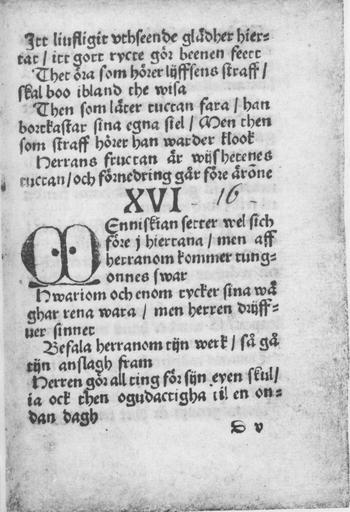 Itt liufligit vthseende glädher hier-
tat / itt gott rycte gör beenen feett
Thet öra som hörer lijffsens straff /
skal boo ibland the wisa
Then som låter tuctan fara / han
bortkastar sina egna siel / Men then
som straff hörer han warder klook
Herrans fructan är wijshetenes
tuctan / och förnedring går före ärone
XVI - 16 -
MEnniskian setter wel sich
före j hiertana / men aff
herranom kommer tung-
onnes swar
Hwariom och enom tycker sina wä
ghar rena wara / men herren drijff-
uer sinnet
Befala herranom tijn werk / så gå
tijn anslagh fram
Herren gör all ting för sijn eyen skul /
ia ock then ogudactigha til en on-
dan dagh
D v